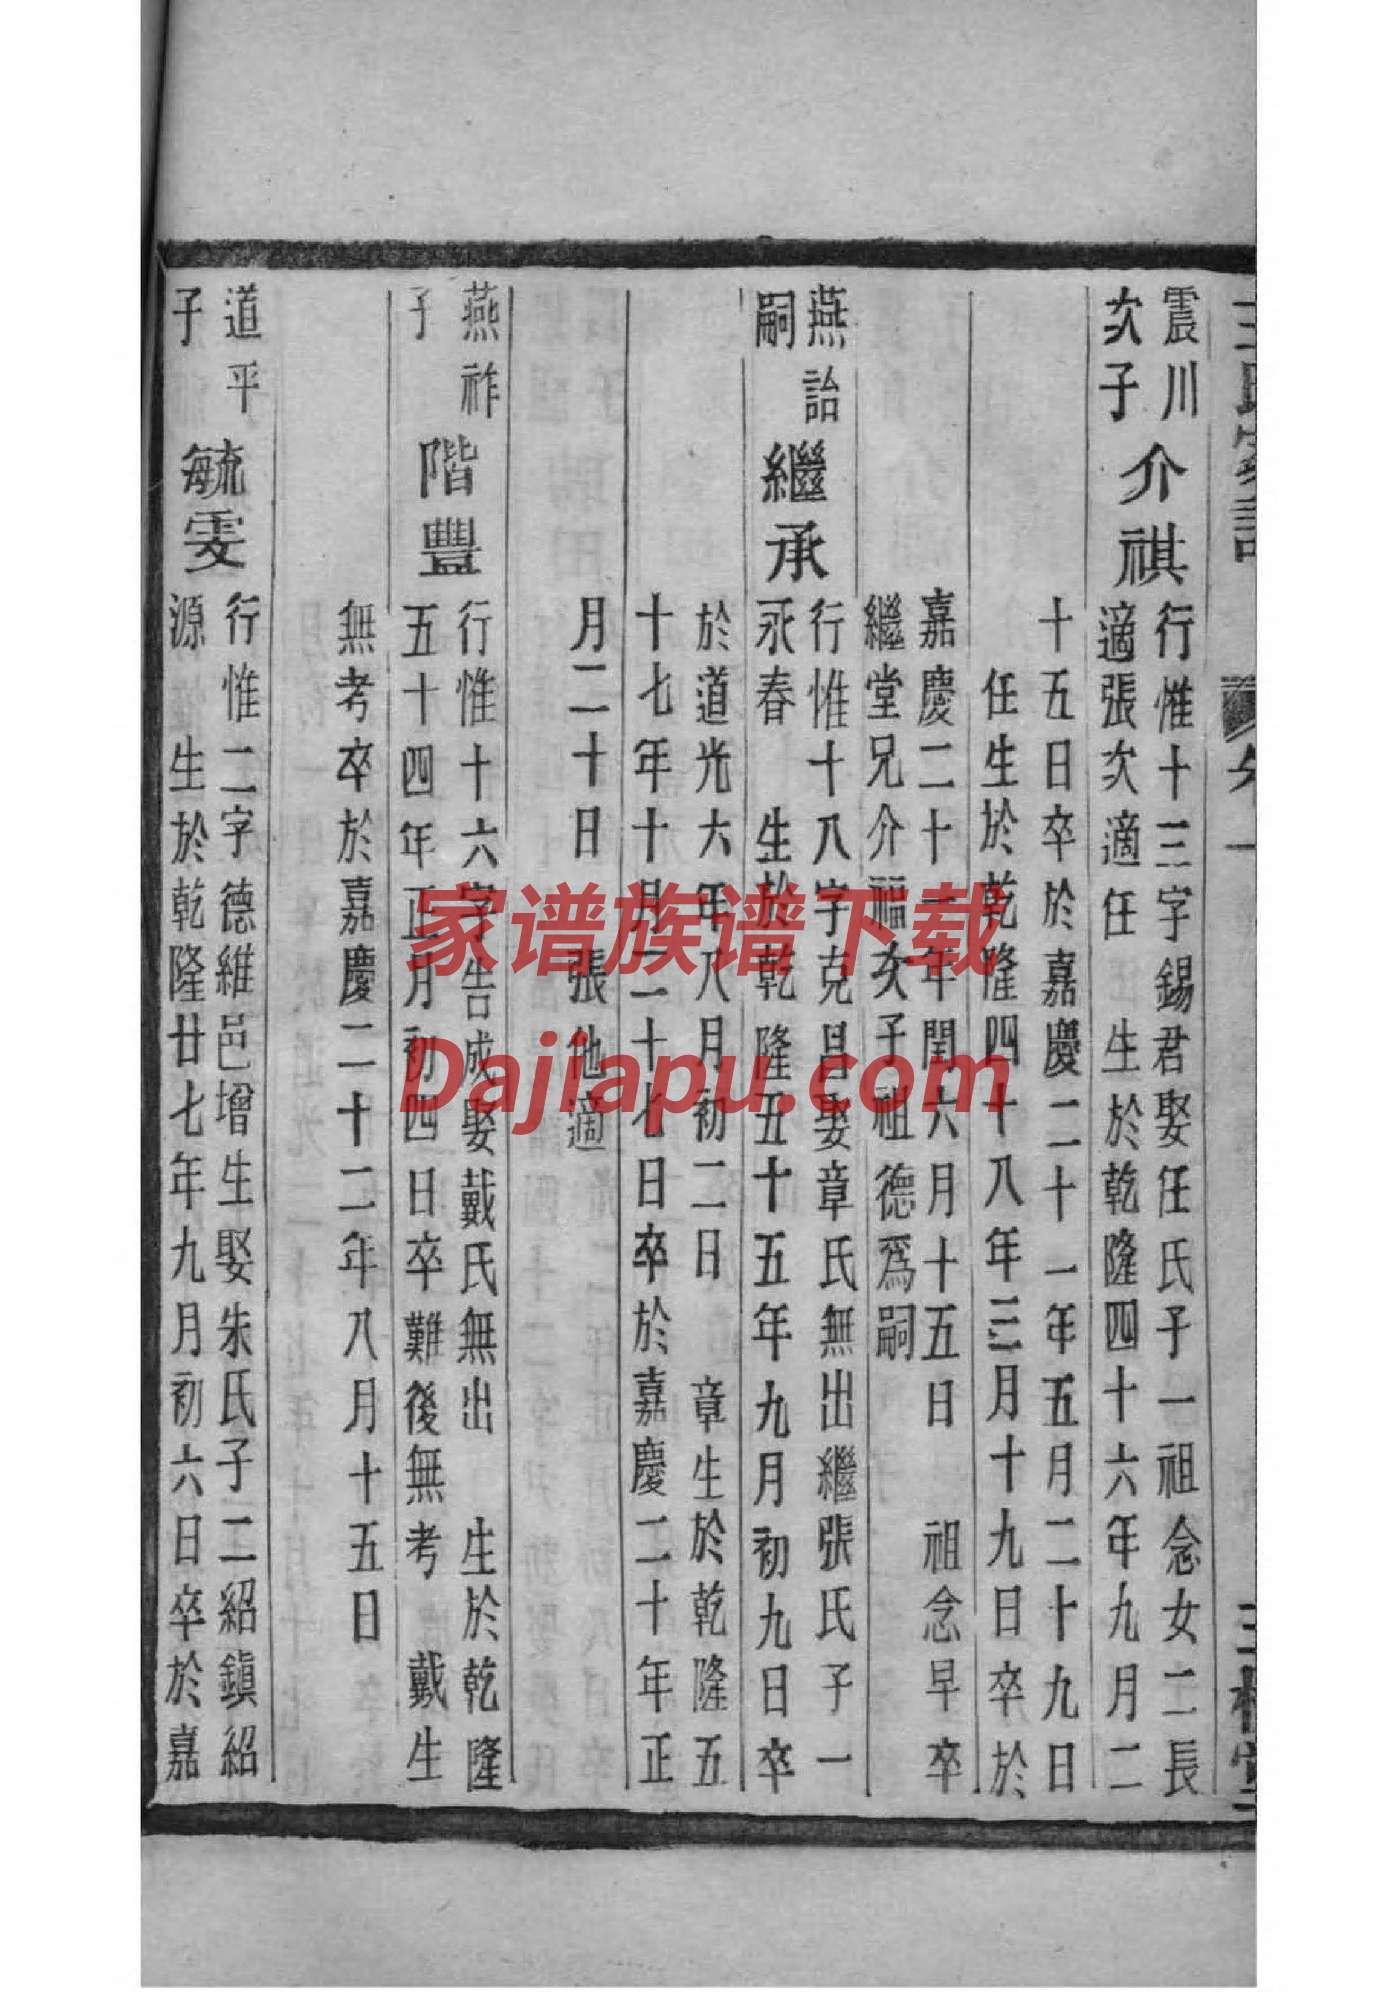 王氏家譜
卷一
三槐堂
震川
次子
介祺
行惟十三字錫君娶任氏子一祖念女二長
適張次適任 生於乾隆四十六年九月二
十五日卒於嘉慶二十一年五月二十九日
任生於乾隆四十八年三月十九日卒於
嘉慶二十二年閏六月十五日 祖念早卒
繼堂兄介福次子祖德為嗣
燕詒
嗣
繼承
行惟十八字克昌娶章氏無出繼張氏子一
永春 生於乾隆五十五年九月初九日卒
於道光六年八月初二日 章生於乾隆五
十七年十月二十七日卒於嘉慶二十年正
月二十日 張他適
燕祚
子
階豐
行惟十六字告成娶戴氏無出 生於乾隆
五十四年正月初四日卒難後無考 戴生
無考卒於嘉慶二十二年八月十五日
道平
子
毓雯
行惟二字德維邑增生娶朱氏子二紹鎮紹
源 生於乾隆廿七年九月初六日卒於嘉
家谱族谱下载
Dajiapu.com